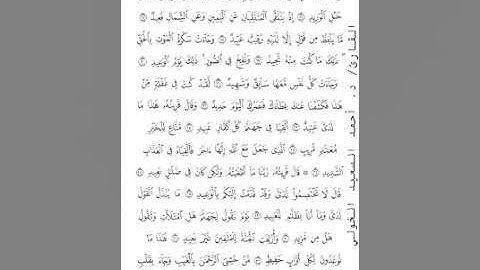 حَبْلِ ٱلْوَرِيدِ ١٦ إِذْ يَتَلَقَّى ٱلْمُتَلَقِّيَانِ عَنِ ٱلْيَمِينِ وَعَنِ ٱلشِّمَالِ قَعِيدٌ ١٧
مَّا يَلْفِظُ مِن قَوْلٍ إِلَّا لَدَيْهِ رَقِيبٌ عَتِيدٌ ١٨ وَجَآءَتْ سَكْرَةُ ٱلْمَوْتِ بِٱلْحَقِّ
ذَٰلِكَ مَا كُنتَ مِنْهُ تَحِيدُ ١٩ وَنُفِخَ فِي ٱلصُّورِ ذَٰلِكَ يَوْمُ ٱلْوَعِيدِ ٢٠
وَجَآءَتْ كُلُّ نَفْسٍ مَّعَهَا سَآئِقٌ وَشَهِيدٌ ٢١ لَّقَدْ كُنتَ فِي غَفْلَةٍ مِّنْ
هَٰذَا فَكَشَفْنَا عَنكَ غِطَآءَكَ فَبَصَرُكَ ٱلْيَوْمَ حَدِيدٌ ٢٢ وَقَالَ قَرِينُهُۥ هَٰذَا مَا
لَدَيَّ عَتِيدٌ ٢٣ أَلْقِيَا فِي جَهَنَّمَ كُلَّ كَفَّارٍ عَنِيدٍ ٢٤ مَّنَّاعٍ لِّلْخَيْرِ
مُعْتَدٍ مُّرِيبٍ ٢٥ ٱلَّذِي جَعَلَ مَعَ ٱللَّهِ إِلَٰهًا ءَاخَرَ فَأَلْقِيَاهُ فِي ٱلْعَذَابِ
ٱلشَّدِيدِ ٢٦ ۞ قَالَ قَرِينُهُۥ رَبَّنَا مَآ أَطْغَيْتُهُۥ وَلَٰكِن كَانَ فِي ضَلَٰلٍۭ بَعِيدٍ ٢٧
قَالَ لَا تَخْتَصِمُوا۟ لَدَيَّ وَقَدْ قَدَّمْتُ إِلَيْكُم بِٱلْوَعِيدِ ٢٨ مَا يُبَدَّلُ ٱلْقَوْلُ
لَدَيَّ وَمَآ أَنَا۠ بِظَلَّٰمٍ لِّلْعَبِيدِ ٢٩ يَوْمَ نَقُولُ لِجَهَنَّمَ هَلِ ٱمْتَلَأْتِ وَتَقُولُ
هَلْ مِن مَّزِيدٍ ٣٠ وَأُزْلِفَتِ ٱلْجَنَّةُ لِلْمُتَّقِينَ غَيْرَ بَعِيدٍ ٣١ هَٰذَا مَا
تُوعَدُونَ لِكُلِّ أَوَّابٍ حَفِيظٍ ٣٢ مَّنْ خَشِيَ ٱلرَّحْمَٰنَ بِٱلْغَيْبِ وَجَآءَ بِقَلْبٍ
القارئ/ د. أحمد السعيد الخولي